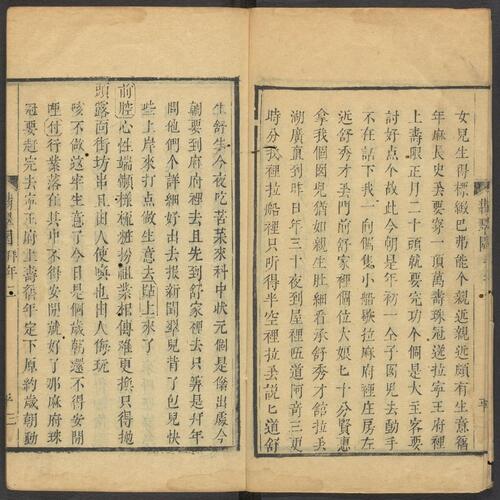 女兒生得標緻巴帶能个親近親近頗有生意舊
年麻長史
要穿一頂萬壽珠冠送拉寧王府裡
上壽限正月二十頭就要完功个個是大主客要
討好点个故此今朝是年初一
子囡兒去動手
不在話下我一向偶隻小船歇拉麻府裡庄房左
近舒秀才
門前舒家裡個位大娘
十分賢惠
拿我個囡兒猶如親生肚細看承舒秀才館拉
湖廣直到昨日年三十夜到屋裡
道阿
三更
時分我裡拉船裡只所得半空裡拉
說
道舒
生舒生今夜吃苦菜來科中狀元個是儕出處今
朝要到麻府裡去且先到舒家裡去只筭是拜年
問他們个詳細好出去報新聞翠兒背了包兒快
些上岸來打点做生意去
上來了
前腔心性端
樣粧扮祖業相傳难更換只得拋
頭露面街坊串且由人使喚也由人侮玩
咳不做這半生意了今日是個歲朝還不得安閒
唓付行業落在其中不得安閒就好了那麻府珠
冠要趕完去寧王府上壽舊年定下原約歲朝動